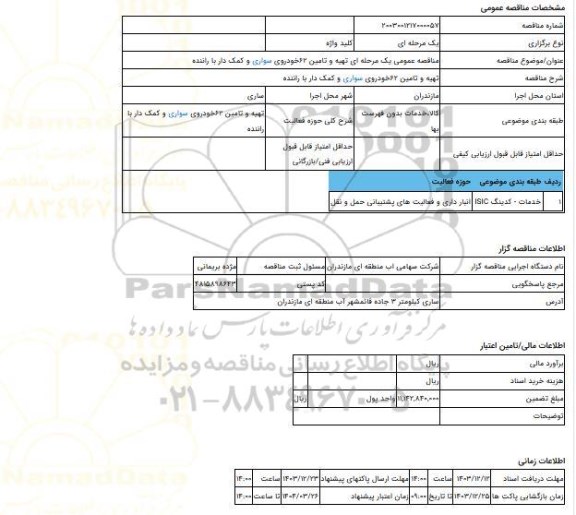 مشخصات مناقصه عمومی
شماره مناقصه ۲۰۰۳۰۰۱۲۱۷۰۰۰۰۵۷
نوع برگزاری یک مرحله ای کلید واژه
عنوان/موضوع مناقصه مناقصه عمومی یک مرحله ای تهیه و تامین ۶۲خودروی سواری و کمک دار با راننده
شرح مناقصه تهیه و تامین ۶۲خودروی سواری و کمک دار با راننده
استان محل اجرا مازندران شهر محل اجرا ساری
طبقه بندی موضوعی کالا،خدمات بدون فهرست بها شرح کلی حوزه فعالیت تهیه و تامین ۶۲خودروی سواری و کمک دار با راننده
حداقل امتیاز قابل قبول ارزیابی کیفی حداقل امتیاز قابل قبول ارزیابی فنی/بازرگانی
ردیف طبقه بندی موضوعی حوزه فعالیت
۱ خدمات - کدینگ ISIC انبار داری و فعالیت های پشتیبانی حمل و نقل
اطلاعات مناقصه گزار
نام دستگاه اجرایی مناقصه گزار شرکت سهامی اب منطقه ای مازندران مسئول ثبت مناقصه مژده بریمانی
مرجع پاسخگویی کد پستی ۴۸۱۵۸۹۸۶۴۳
آدرس ساری کیلومتر ۳ جاده قائمشهر آب منطقه ای مازندران
ParsNamadData
مرکز فرآوری اطلاعات پارس نماد داده ها
اطلاعات مالی/تامین اعتبار
برآورد مالی ریال
هزینه خرید اسناد ریال
پایگاه اطلاع رسانی مناقصه و مزایده
مبلغ تضمین واحد پول ریال
۰۲۱-۸۸۳۴۹۶۷۰-۵
توضیحات
اطلاعات زمانی
مهلت دریافت اسناد ۱۴۰۳/۱۲/۱۲ ساعت ۱۴:۰۰ مهلت ارسال پاکتهای پیشنهاد ۱۴۰۳/۱۲/۲۳ ساعت ۱۴:۰۰
زمان بازگشایی پاکت ها ۱۴۰۳/۱۲/۲۵ تا تاریخ ۰۹:۰۰ زمان اعتبار پیشنهاد ۱۴۰۴/۰۳/۲۶ تا ساعت ۱۴:۰۰